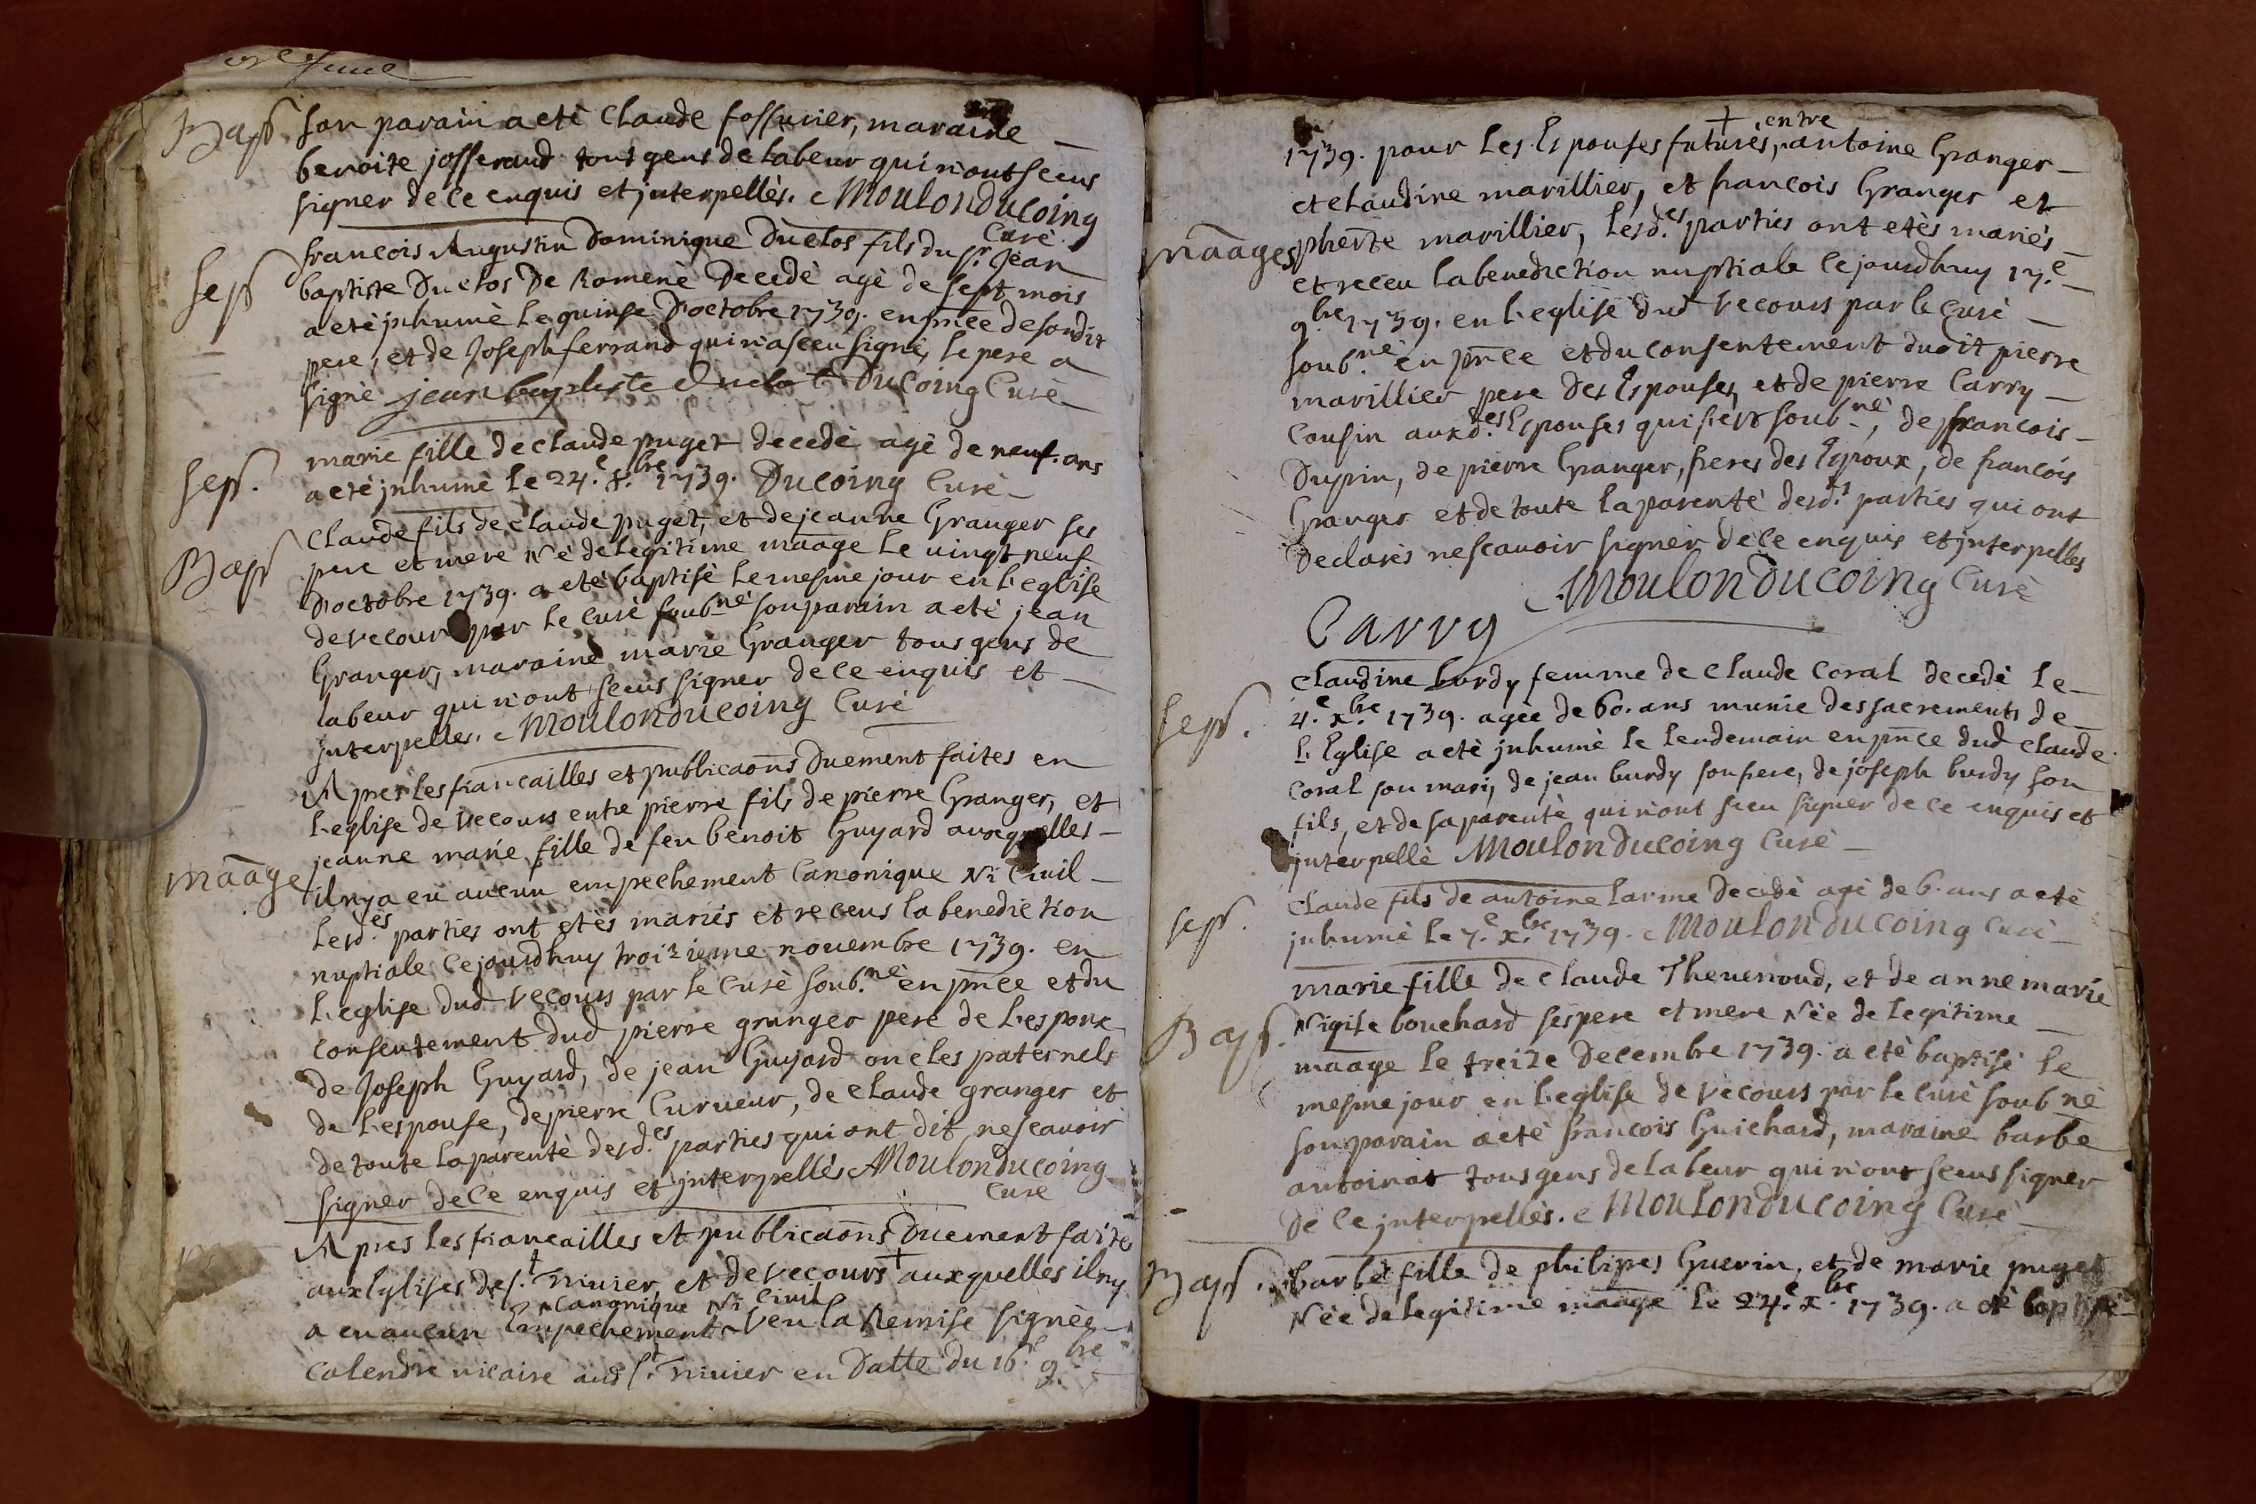 Bap
son parain a etè Claude fossurier, maraine
benoite josserand tous gens de labeur qui n'ont sceus
signer de ce enquis et jnterpellès. Moulonducoing
Curè
sep
francois Augustin Dominique Duclos fils du sr. jean
baptiste Duclos De Romenè Decedè agè de sept mois
a etè jnhumè Le quinse D'octobre 1739. en pnce de sondit
pere, et de Joseph ferrand qui n'a sceu signè, le pere a
signè jean baptiste duclos Ducoing Curè
sep.
marie fille de claude puget decedè agè de neuf. ans
a etè jnhumè Le 24.e 8.bre 1739. Ducoing Curè
Bap
Claude fils de claude puget, et de jeanne Granger ses
pere et mere Nè de legitime maage Le uingt neuf
D'octobre 1739. a etè baptisè Le mesme jour en L'eglise
de vecour par le Curè soub.nè son parain a etè jean
Granger, maraine marie Granger tous gens de
labeur qui n'ont sceus signer de ce enquis et
jnterpellès. Moulonducoing Curè
maage
Apres les fiancailles et publicaons Duement faites en
L'eglise de Vecours entre pierre fils de pierre Granger, et
jeanne marie fille de feu benoit Guyard auxquelles
il ny a eu aucun empechement Canonique Ni Ciuil
Lesd.es parties ont etès mariès et receus la benediction
nuptiale Cejourdhuy troizieme nouembre 1739. en
L'eglise dud Vecours par le Curè soub.nè en pnce et du
consentement dud pierre granger pere de L'espoux
de Joseph Guyard, de jean Guyard oncles paternels
de L'espouse, de pierre Curueur, de Claude granger et
de toute la parentè desd.es parties qui ont dit ne scauoir
signer de Ce enquis et jnterpellès Moulonducoing
Curè
Apres les fiancailles et publicaons Duement faites
aux Eglises de s.t Triuier, et de vecours auxquelles il ny
Canonique Ni Ciuil
a eu aucun Empechement Veu la Remise signèe
Calendre uicaire aud s.t Triuier en Datte du 16.e 9.bre
entre
1739. pour Les Espouses futures, antoine Granger
et Claudine marillier, et francois Granger et
maages
pierrte marillier, Lesd.es parties ont etès mariès
et receu la benediction nuptiale Cejourdhuy 17.e
9.bre 1739. en L'eglise dud Vecours par le Curè
soub.nè en pnce et du consentement dudit pierre
marillier pere des Espouses, et de pierre Carry
Cousin auxd.es Espouses qui s'est soub.nè, de francois
Dupin, de pierre Granger, freres des Espoux, de francois
Granger et de toute la parentè desd.s parties qui ont
Declarès ne scauoir signer de Ce enquis et jnterpelles
Moulonducoing Curè
Carry
sep.
Claudine burdy femme de Claude Coral decedè Le
4.e x.bre 1739. agèe de 60. ans munie des sacrements de
L'Eglise a etè jnhumè le lendemain en pnce dud Claude
Coral son mari, de jean burdy son frere, de joseph burdy son
fils, et de sa parentè qui n'ont sceu signer de ce enquis et
jnterpellè Moulonducoing Curè
sep.
Claude fils de antoine Larme Decedè agè de 6. ans a etè
jnhumè Le 7.e x.bre 1739. Moulonducoing Curè
Bap.
marie fille de Claude Theuenoud, et de anne marie
Nigile bouchard ses pere et mere Nèe de legitime
maage le treize Decembre 1739. a etè baptisè le
mesme jour en L'eglise de Vecours par le Curè soub.nè
son parain a etè francois Guichard, maraine barbe
antoinat tous gens de labeur qui n'ont sceus signer
De Ce jnterpellès. Moulonducoing Curè
Bap.
barbe fille de philipes Guerin, et de marie puget
Nèe de legitime maage le 24.e x.bre 1739. a etè baptisè